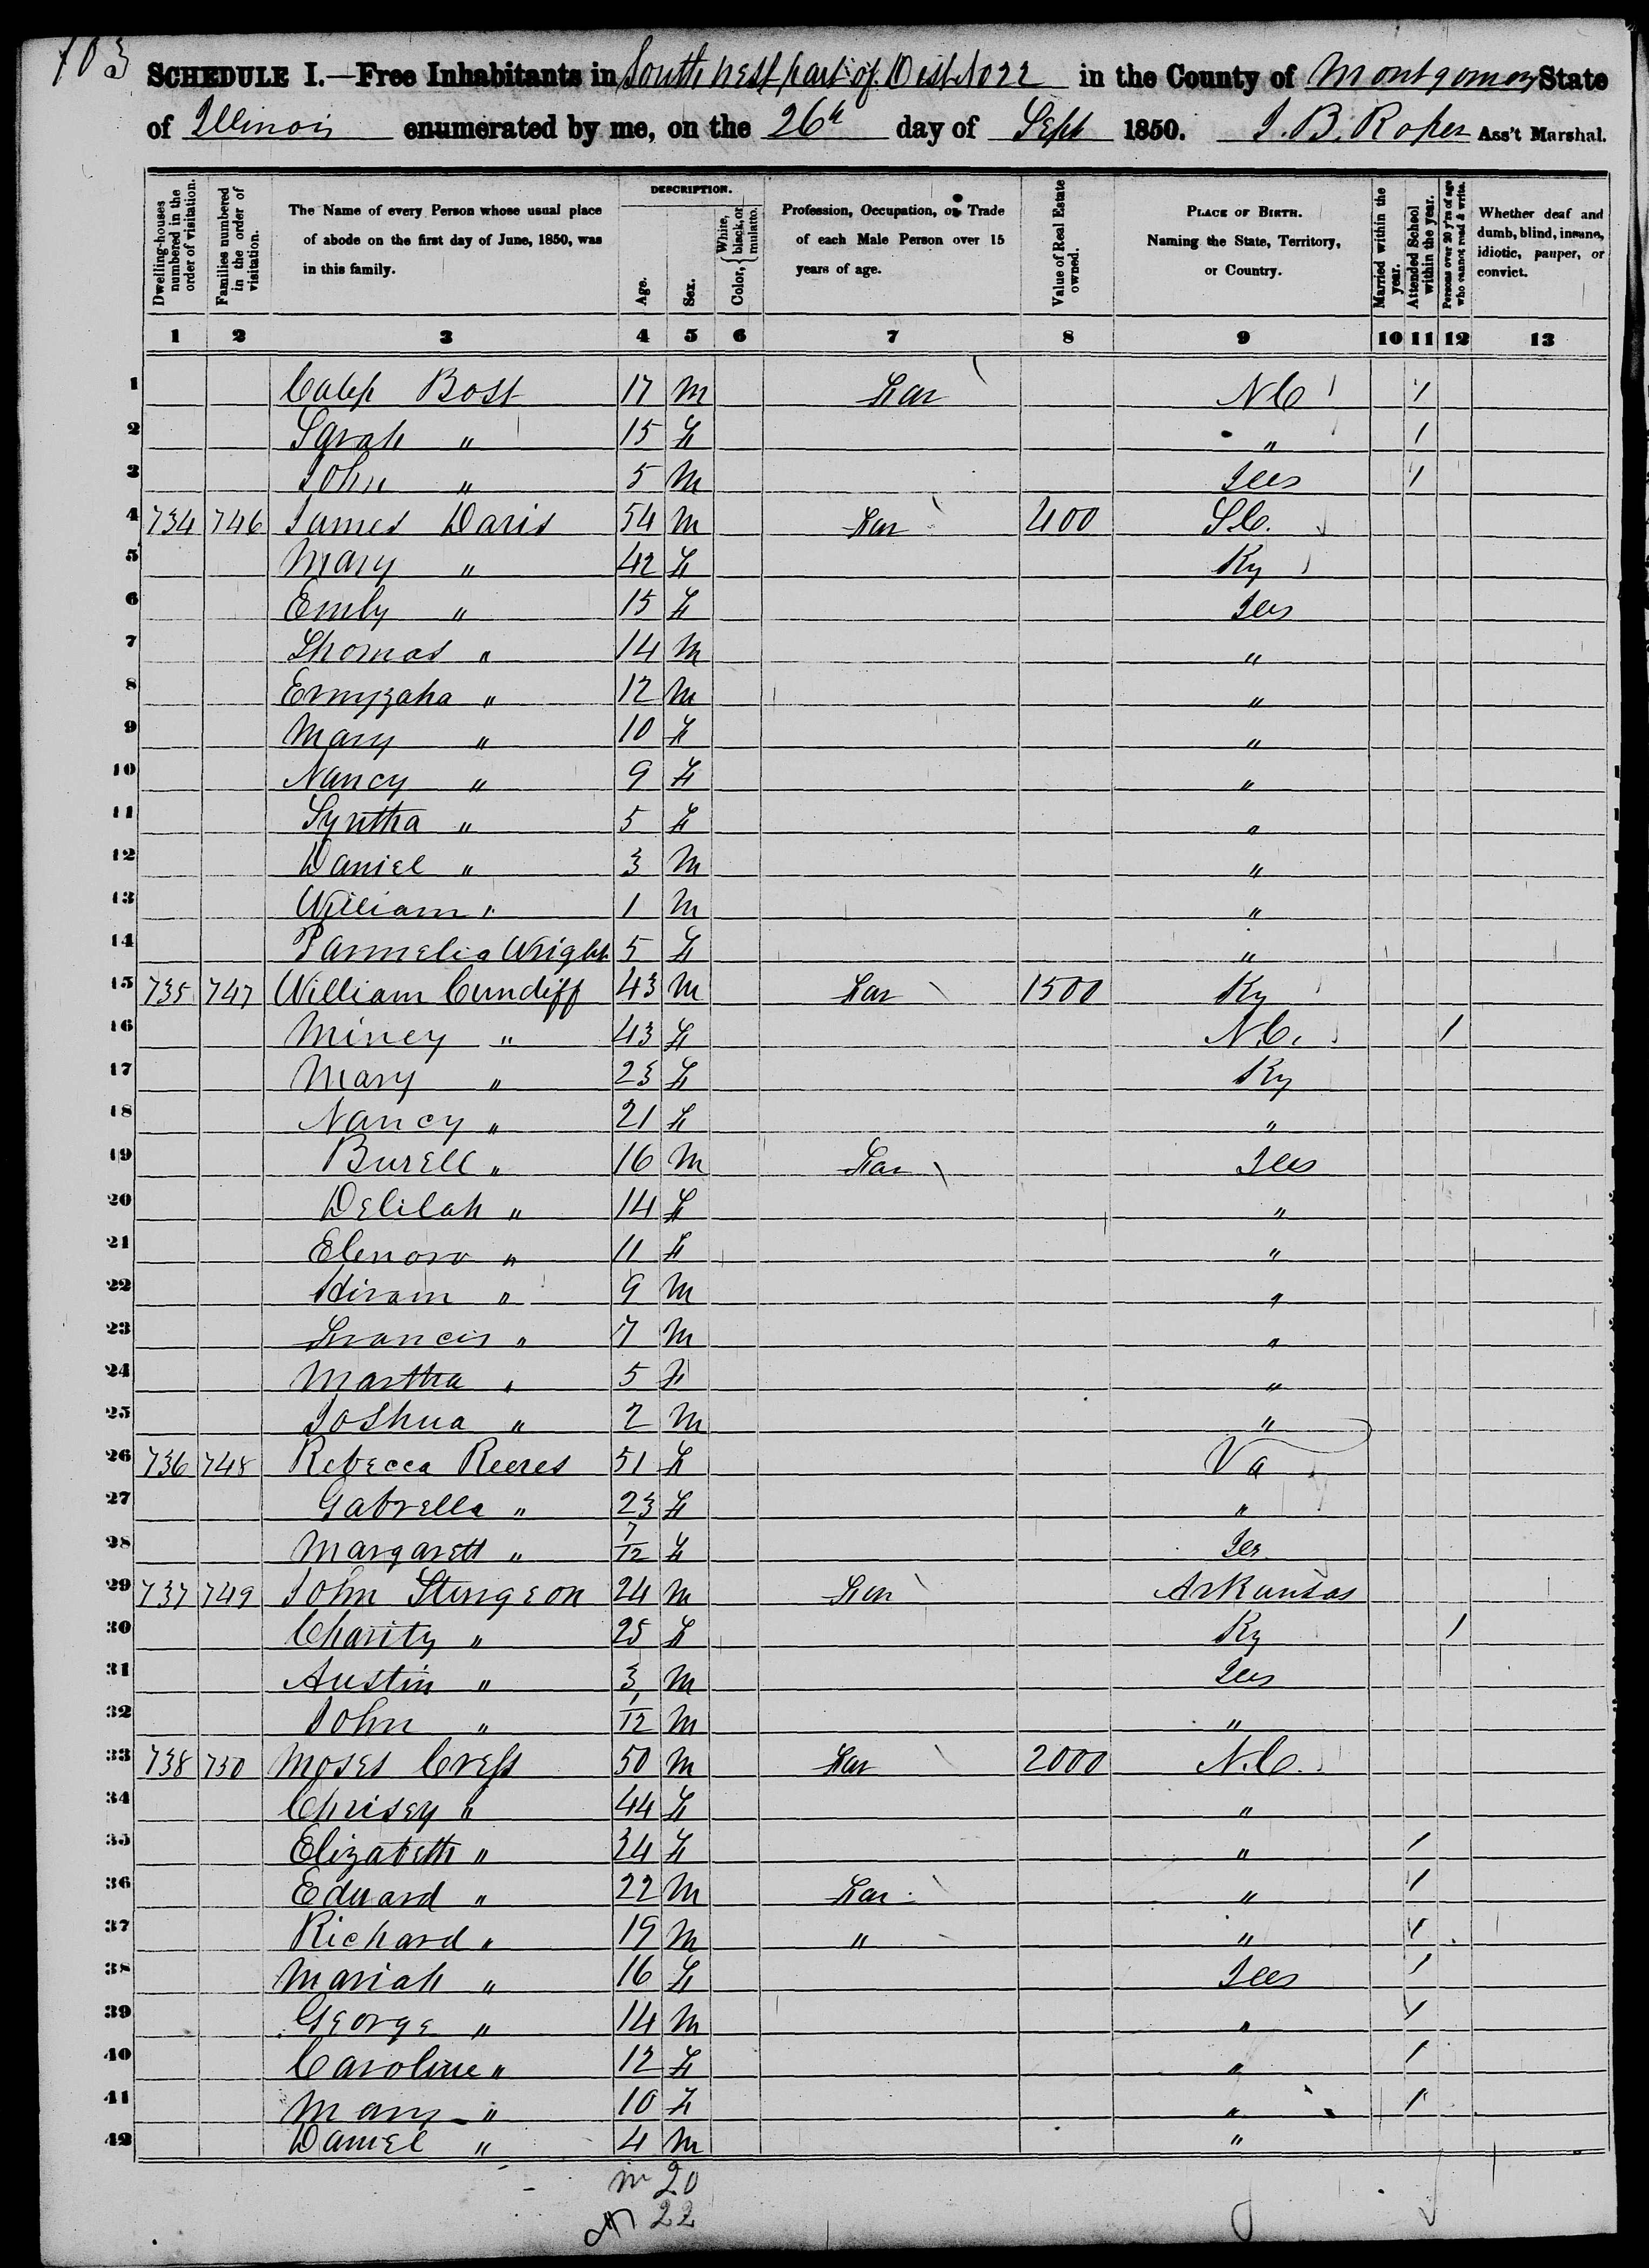 103
SCHEDULE I.—Free Inhabitants in South West part of Dist No 22 in the County of Montgomery State
of Illinois enumerated by me, on the 26th day of Sept 1850. J. B. Roper Ass't Marshal.
Dwelling-houses numbered in the order of visitation.
Families numbered in the order of visitation.
The Name of every Person whose usual place of abode on the first day of June, 1850, was in this family.
DESCRIPTION.
Age.
Sex.
Color, { White, black, or mulatto.
Profession, Occupation, or Trade of each Male Person over 15 years of age.
Value of Real Estate owned.
PLACE OF BIRTH. Naming the State, Territory, or Country.
Married within the year.
Attended School within the year.
Persons over 20 y'rs of age who cannot read & write.
Whether deaf and dumb, blind, insane, idiotic, pauper, or convict.
1 2 3 4 5 6 7 8 9 10 11 12 13
1 Caleb Bost 17 M Far N C 1
2 Sarah " 15 F " 1
3 John " 5 M Ills 1
4 734 746 James Davis 54 M Far 400 S C.
5 Mary " 42 F Ky
6 Emily " 15 F Ills
7 Thomas " 14 M "
8 12 M "
9 Mary " 10 F "
10 Nancy " 9 F "
11 Syntha " 5 F "
12 Daniel " 3 M "
13 William " 1 M "
14 Parmelia Wright 5 F "
15 735 747 William Cundiff 43 M Far 1500 Ky
16 Miney " 43 F N.C. 1
17 Mary " 23 F Ky
18 Nancy " 21 F "
19 Burell " 16 M Far Ills
20 Delilah " 14 F "
21 Elenora " 11 F "
22 Hiram " 9 M "
23 Francis " 7 M "
24 Martha " 5 F "
25 Joshua " 2 M "
26 736 748 Rebecca Reeves 51 F Va
27 Gabrella " 23 F "
28 Margarett " 7/12 F Ills
29 737 749 John Sturgeon 24 M Far Arkansas
30 Charity " 25 F Ky 1
31 Austin " 3 M Ills
32 John " 1/12 M "
33 738 750 Moses Cress 50 M Far 2000 N.C.
34 Chrisey " 44 F "
35 Elizabeth " 24 F " 1
36 Edward " 22 M Far " 1
37 Richard " 19 M " " 1
38 Mariah " 16 F Ills 1
39 George " 14 M " 1
40 Caroline " 12 F " 1
41 Mary " 10 F " 1
42 Daniel " 4 M "
m 20
22